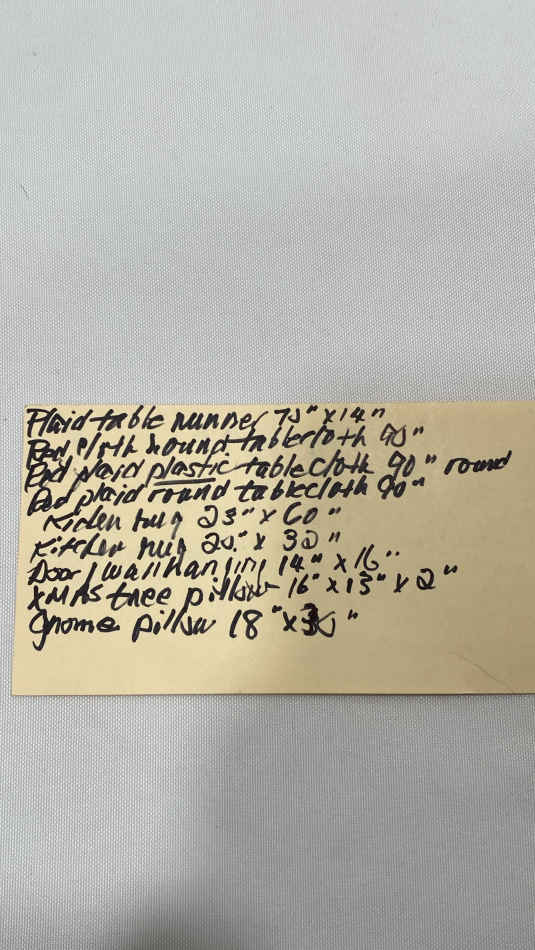 Plaid table runner 70" x 14"
Red cloth round tablecloth 90"
Red plaid plastic tablecloth 90" round
Red plaid round tablecloth 90"
Kichen rug 23" x 60"
Kitchen rug 20" x 30"
Door / wall hanging 14" x 16"
XMAS tree pillow 16" x 13" x 2"
Gnome pillow 18" x